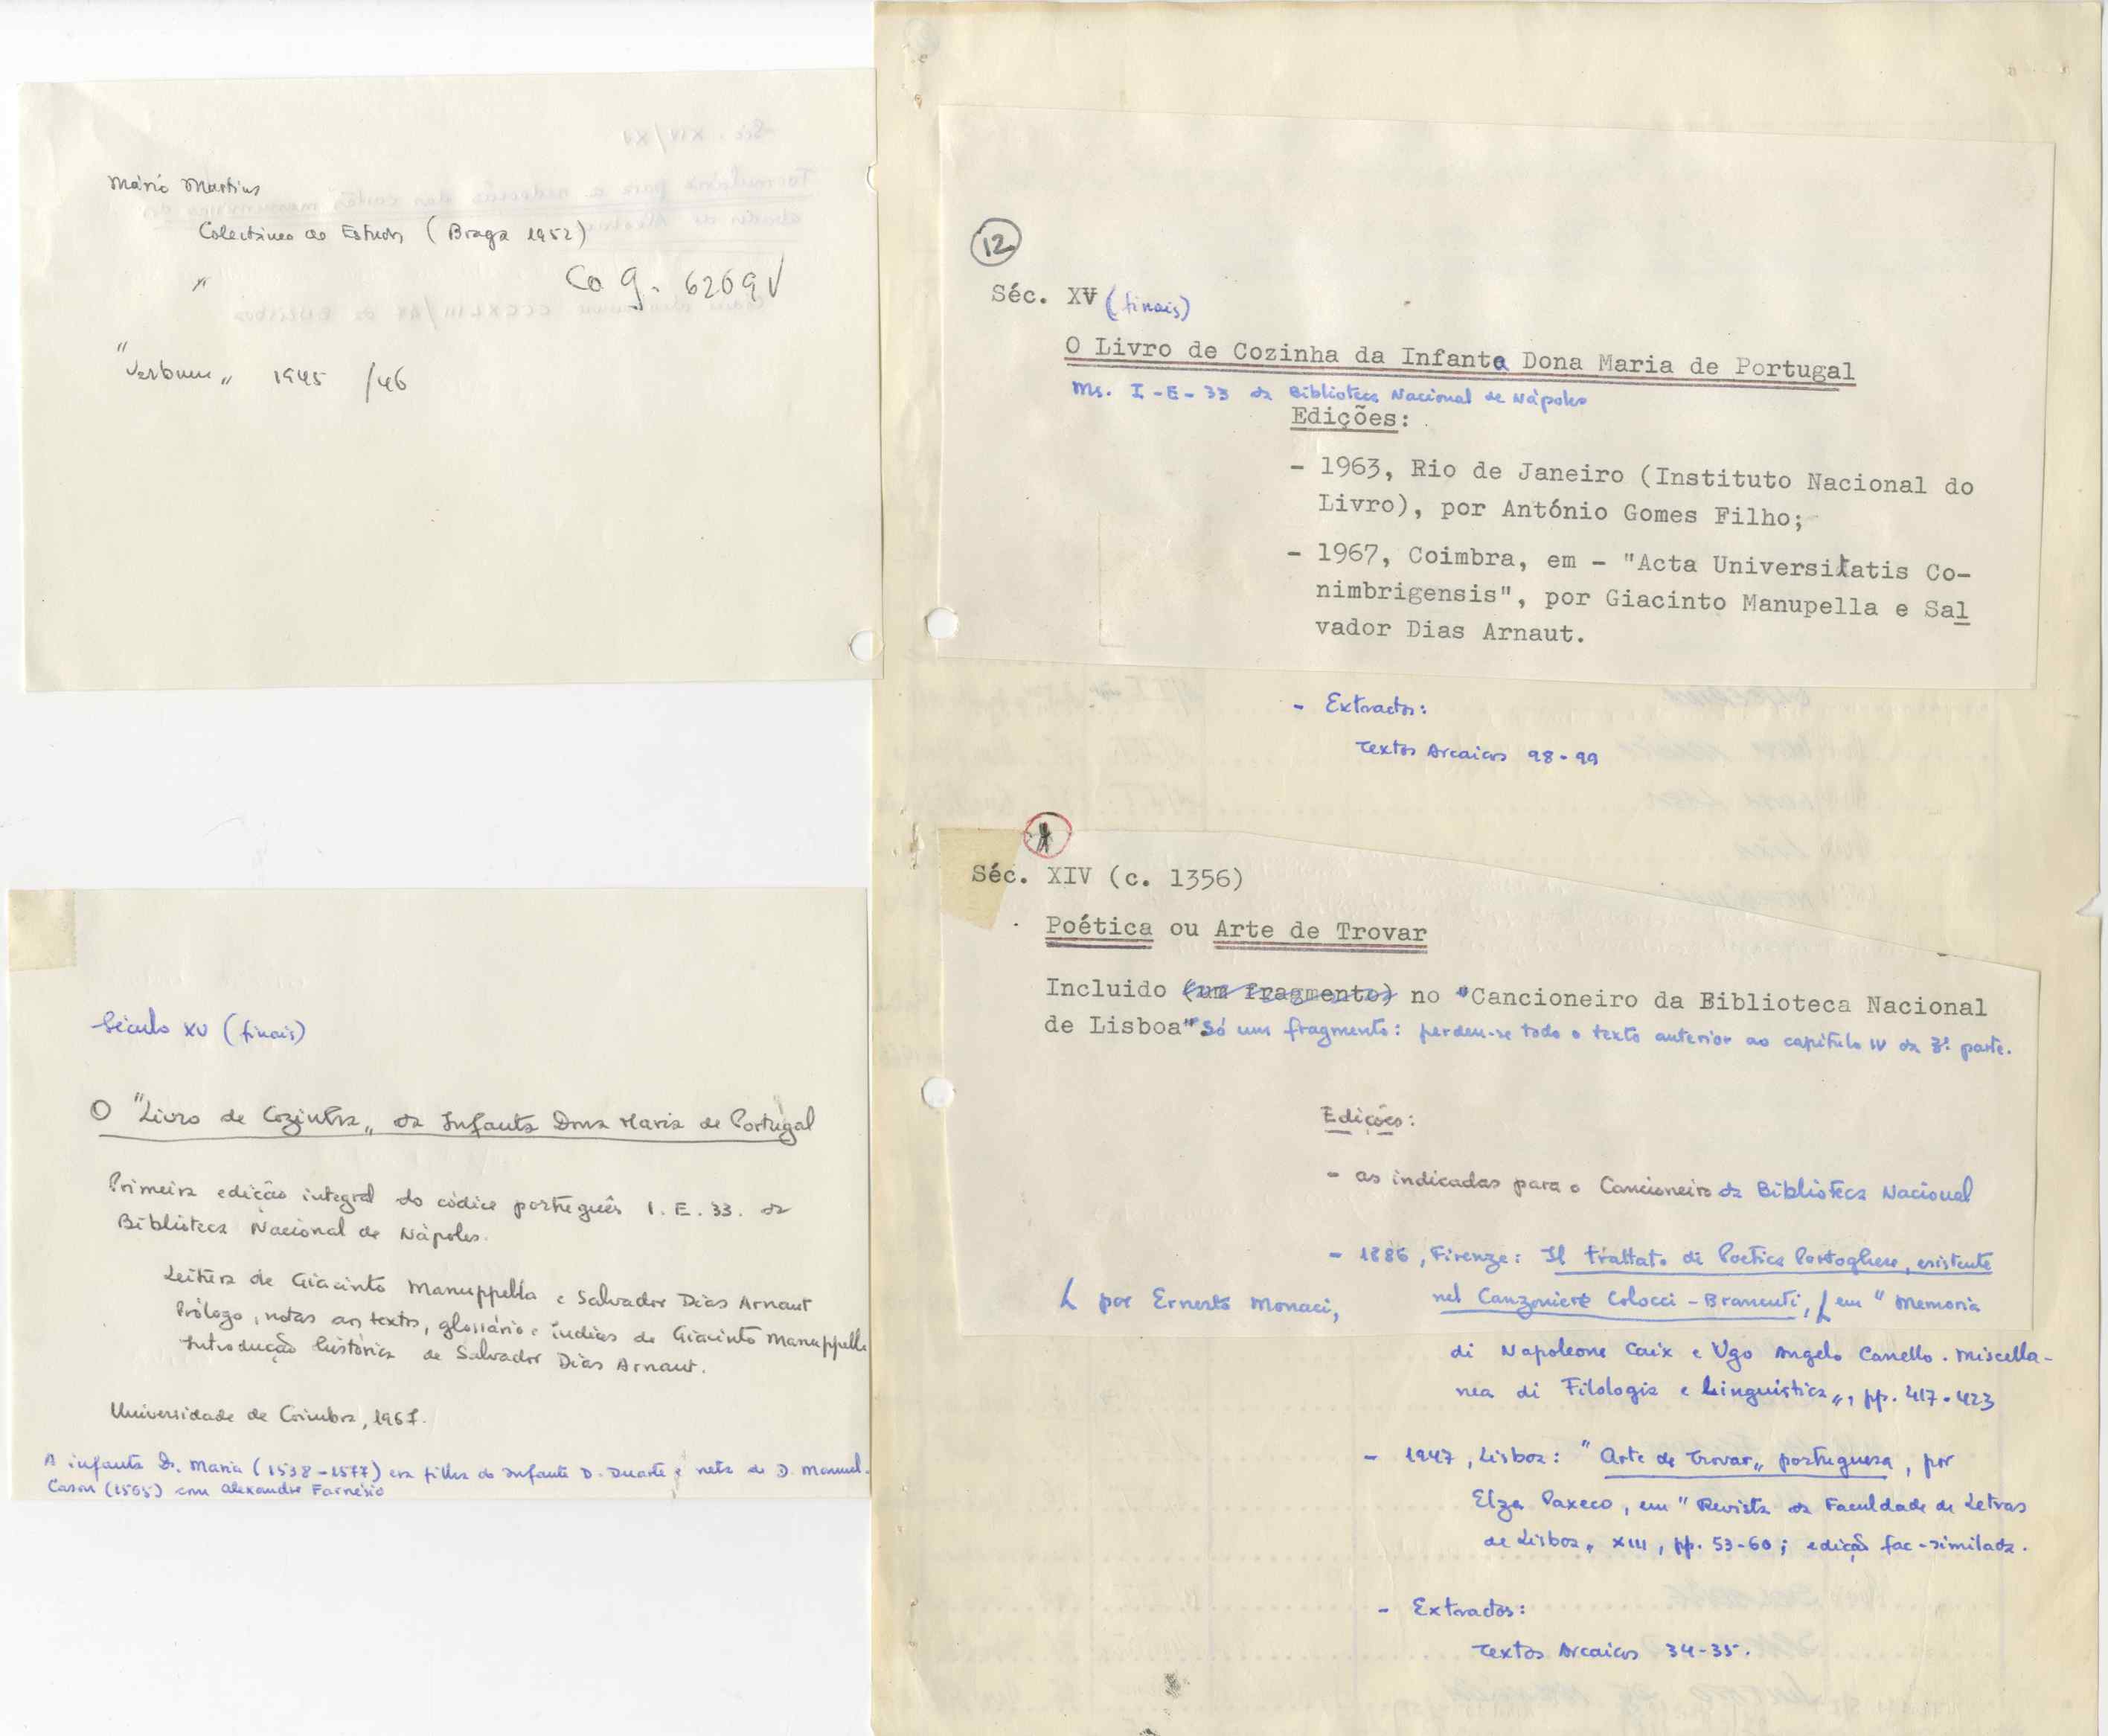 Mário Martins
Colectânea de Estudos (Braga 1952)
"
Co g. 6269 V
"Verbum" 1945 /46
Século XV (finais)
O "Livro de Cozinha" da Infanta Dona Maria de Portugal
Primeira edição integral do códice português I. E. 33. da
Biblioteca Nacional de Nápoles.
Leitura de Giacinto Manuppella e Salvador Dias Arnaut
Prólogo, notas aos textos, glossário e índices de Giacinto Manuppella
Introdução histórica de Salvador Dias Arnaut.
Universidade de Coimbra, 1967.
A infanta D. Maria (1538-1577) era filha do Infante D. Duarte e neta de D. Manuel.
Casou (1565) com Alexandre Farnésio
12
Séc. XV (finais)
O Livro de Cozinha da Infanta Dona Maria de Portugal
Ms. I-E-33 da Biblioteca Nacional de Nápoles
Edições:
- 1963, Rio de Janeiro (Instituto Nacional do
Livro), por António Gomes Filho;
- 1967, Coimbra, em - "Acta Universitatis Co-
nimbrigensis", por Giacinto Manupella e Sal
vador Dias Arnaut.
- Extractos:
Textos Arcaicos 98-99
Séc. XIV (c. 1356)
Poética ou Arte de Trovar
Incluido (um fragmento) no "Cancioneiro da Biblioteca Nacional
de Lisboa" Só um fragmento: perdeu-se todo o texto anterior ao capítulo IV da 3ª parte.
Edições:
- as indicadas para o Cancioneiro da Biblioteca Nacional
- 1886, Firenze: Il trattato di Poetica Portoghese, esistente
nel Canzoniere Colocci-Brancuti, ⌊ em "Memoria
⌊ por Ernesto Monaci,
di Napoleone Caix e Ugo Angelo Canello. Miscella-
nea di Filologia e Linguistica", pp. 417-423
- 1947, Lisboa: "Arte de Trovar" portuguesa, por
Elza Paxeco, em "Revista da Faculdade de Letras
de Lisboa" XIII, pp. 53-60; edição fac-similada.
- Extractos:
Textos Arcaicos 34-35.